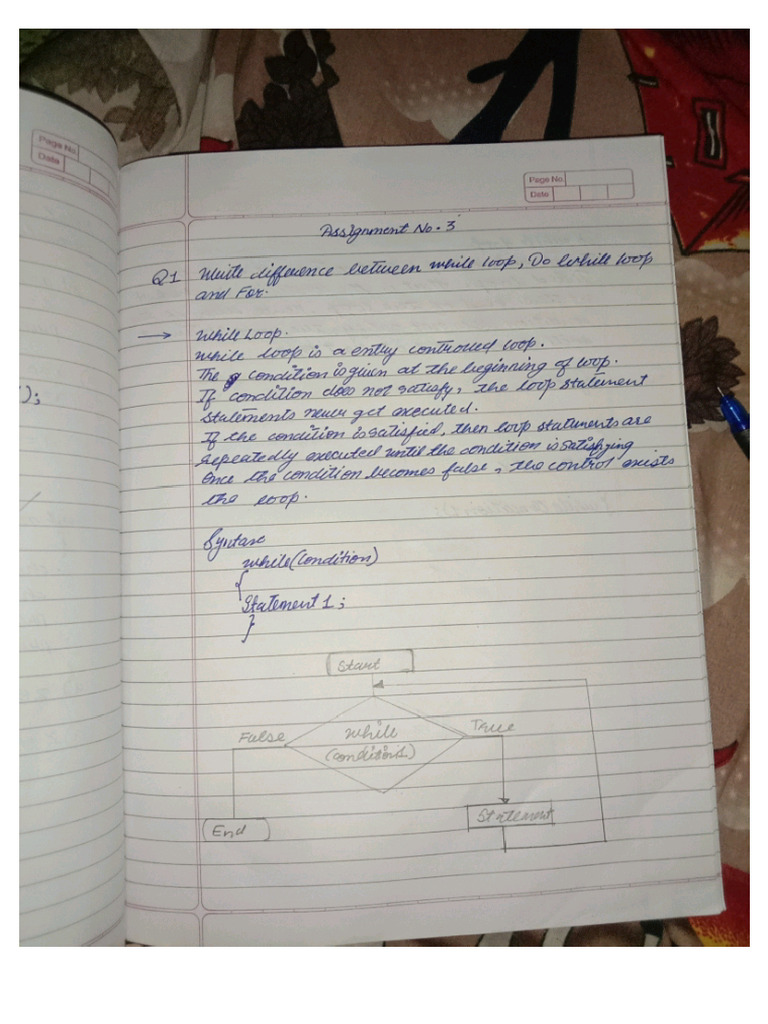 Page No.
Date
Page No.
Date
Assignment No. 3
Q1 Write difference between while loop, Do While loop
and For.
→ While Loop.
While loop is a entry controlled loop.
The condition is given at the beginning of loop.
If condition does not satisfy, the loop statement
statements never get executed.
If the condition is satisfied, then loop statements are
repeatedly executed until the condition is satisfying
Once the condition becomes false, the control exists
the loop.
);
Syntax
while(condition)
{
Statement 1;
}
Start
False
while
(condition1)
True
Statement
End